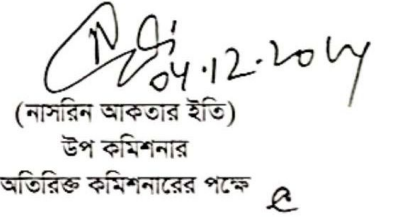 04.12.20
(নাসরিন আকতার ইতি)
উপ কমিশনার
অতিরিক্ত কমিশনারের পক্ষে